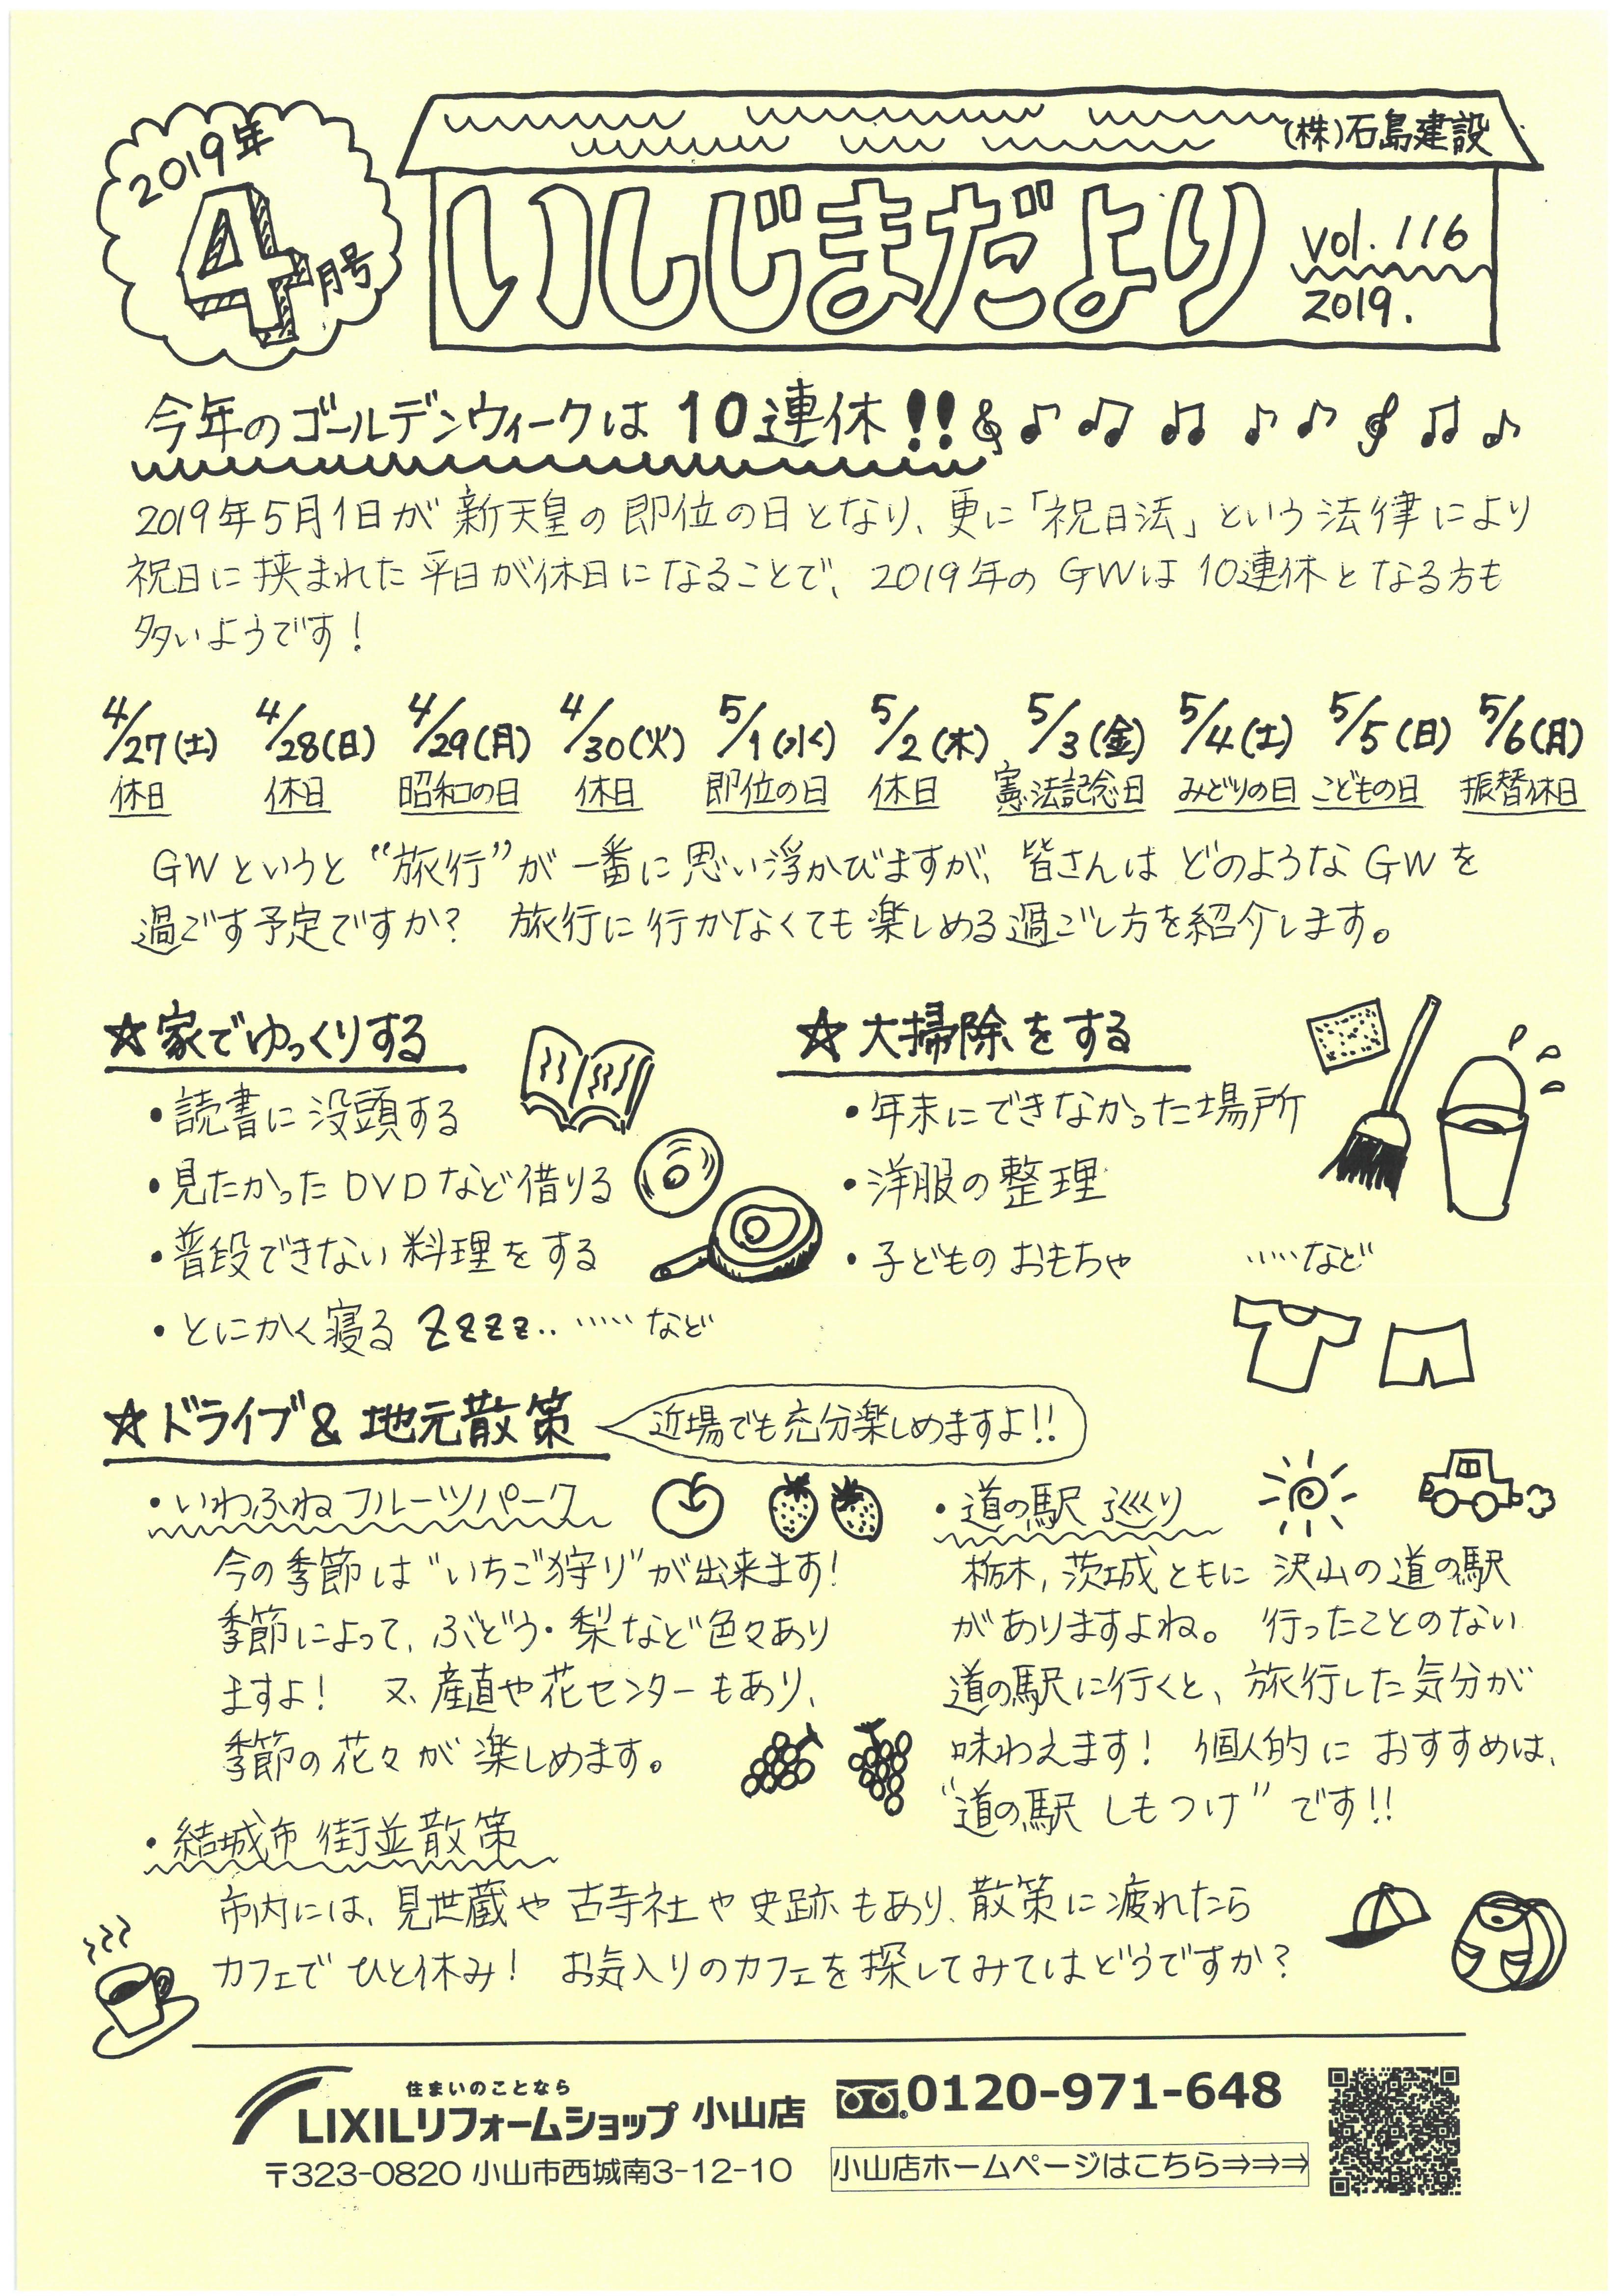 2019年
4月号
(株)石島建設
いしじまだより
vol.116
2019.
今年のゴールデンウィークは10連休!!
2019年5月1日が新天皇の即位の日となり、更に「祝日法」という法律により
祝日に挟まれた平日が休日になることで、2019年のGWは10連休となる方も
多いようです!
4/27(土) 4/28(日) 4/29(月) 4/30(火) 5/1(水) 5/2(木) 5/3(金) 5/4(土) 5/5(日) 5/6(月)
休日 休日 昭和の日 休日 即位の日 休日 憲法記念日 みどりの日 こどもの日 振替休日
GWというと"旅行"が一番に思い浮かびますが、皆さんはどのようなGWを
過ごす予定ですか? 旅行に行かなくても楽しめる過ごし方を紹介します。
☆家でゆっくりする
・読書に没頭する
・見たかったDVDなど借りる
・普段できない料理をする
・とにかく寝る zzzz‥ ……など
☆大掃除をする
・年末にできなかった場所
・洋服の整理
・子どものおもちゃ ……など
☆ドライブ&地元散策
近場でも充分楽しめますよ!!
・いわふねフルーツパーク
今の季節は"いちご狩り"が出来ます!
季節によって、ぶどう・梨など色々あり
ますよ! 又、産直や花センターもあり、
季節の花々が楽しめます。
・道の駅巡り
栃木,茨城ともに沢山の道の駅
がありますよね。 行ったことのない
道の駅に行くと、旅行した気分が
味わえます! 個人的におすすめは、
"道の駅 しもつけ"です!!
・結城市街並散策
市内には、見世蔵や古寺社や史跡もあり、散策に疲れたら
カフェでひと休み! お気入りのカフェを探してみてはどうですか?
住まいのことなら
LIXILリフォームショップ 小山店
0120-971-648
〒323-0820 小山市西城南3-12-10
小山店ホームページはこちら⇒⇒⇒